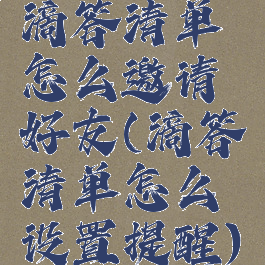 滴答清单
怎么邀请
好友(滴答
清单怎么
设置提醒)